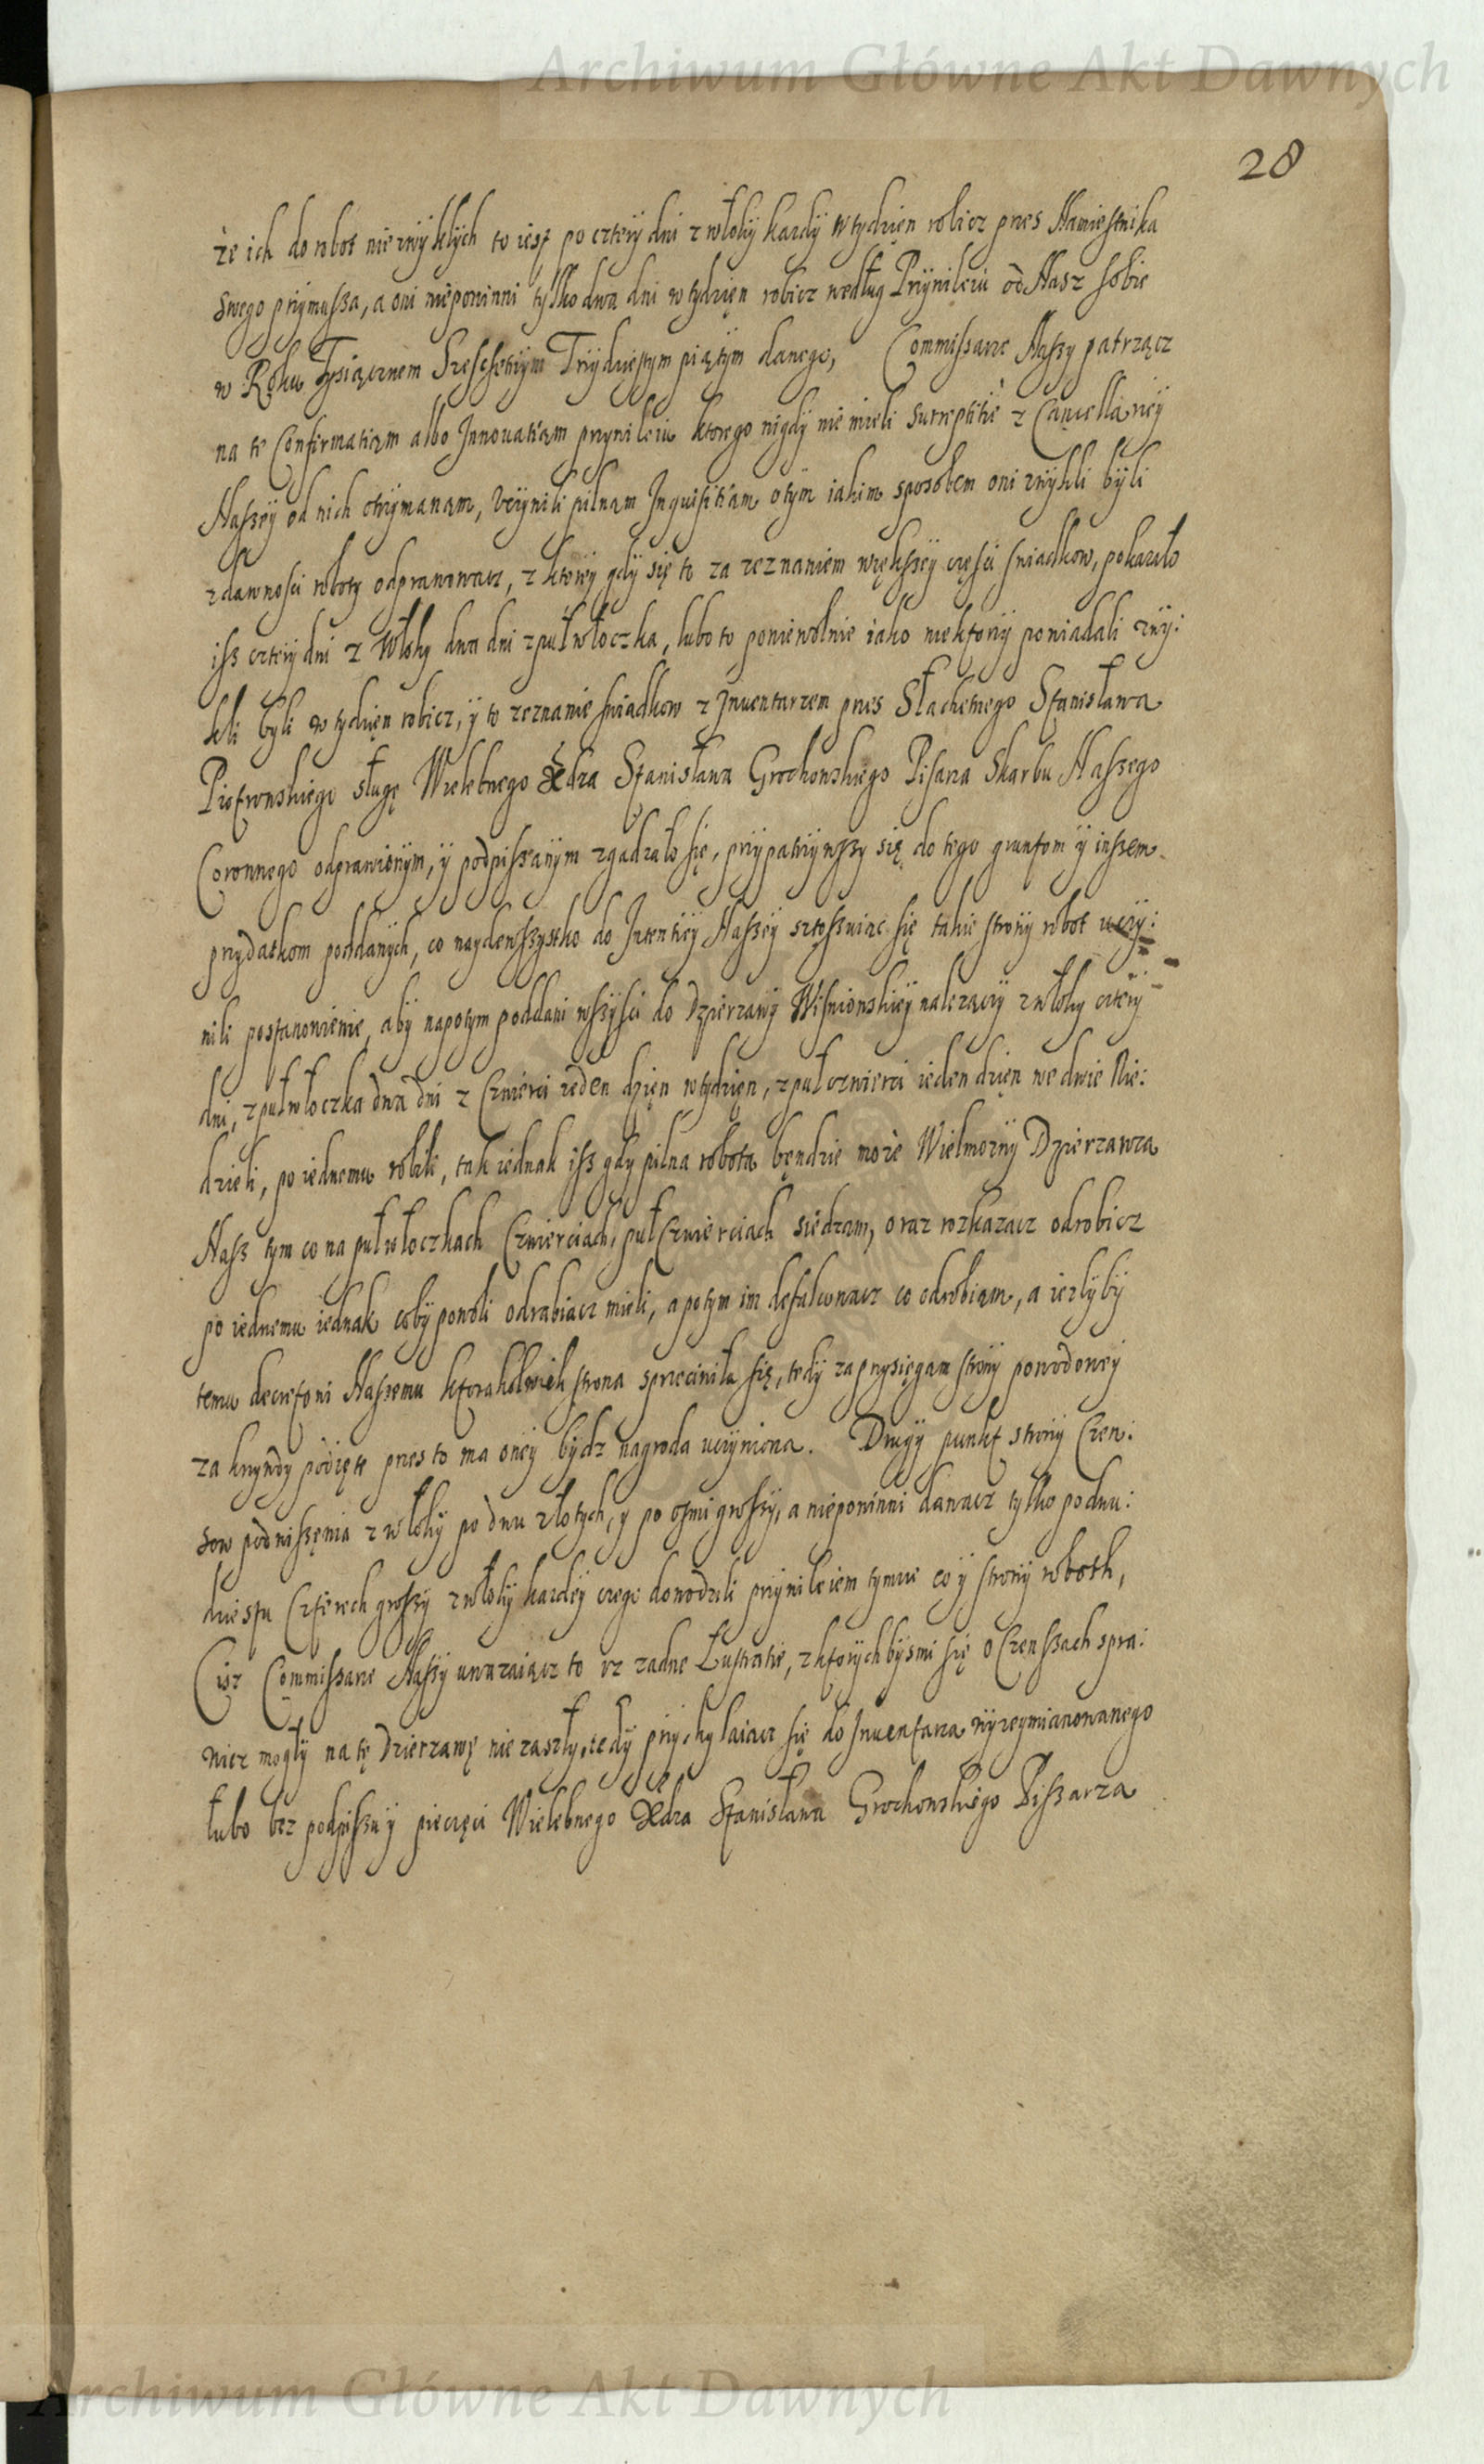 Archiwum Główne Akt Dawnych
28
że ich do robot niezwykłych to iest po cztery dni z włoky kazdy w tydzięn robicz przes Namiestnika
swego przymusza, a oni niepowinni tylko dwa dni w tydzięn robicz według Prziwileiu od Nasz sobie
w Roku Tysiącznem Szescsetnym Trzydziestym piątym danego, Commissarze Naszy patrzącz
na te Confirmatiąm albo Innouatiam przywileiu ktorego nigdy nie mieli surreptitie z Cancellariey
Naszey od nich otrzymanam, vczynili pilnam Inquisitiam o tym iakim sposobem oni zwykli byli
z dawnosci roboty odprawowacz, z ktorey gdy się to za zeznaniem większey części swiadkow, pokazało
isz cztery dni z Włoky dwa dni z pułwłoczka, lubo to poniewolnie iako niektorzy powiadali zwy:
kli byli w tydzięn robicz, y to zeznanie swiadkow z Inuentarzem przes Słachetnego Stanisława
Piotrowskiego sługę Wielebnego Xdza Stanisława Grochowskiego Pisarza Skarbu Naszego
Coronnego odprawionym, y podpiszanym zgadzało się, przypatrzywszy się do tego gruntom y inszem
przydatkom poddanych, co naydewszystko do Intentiey Naszey sztoszuiąc się takie strony robot uczy:
nili postanowienie, aby napotym poddani wszysci do Dzierzawy Wisniowskiey nalezączy z włoky cztery
dni, z pułwłoczka dwa dni z Czwierci ieden dzięn w tydzięn, z pułczwierci ieden dzięn we dwie Nie:
dzieli, po iednemu robili, tak iednak isz gdy pilna robota będzie może Wielmozny Dzierzawza
Nasz tym co na pułwłoczkach Czwierciach, pułCzwierciach siedzam, oraz rozkazacz odrobicz
po iednemu iednak coby powoli odrabiacz mieli, a potym im defalcowacz co odrobiam, a iezlyby
temu decretowi Naszemu ktorakolwiek strona sprzeciwiła się, tedy za przysięgam strony powodowey
za krzywdy podięte przes to ma oney bydz nagroda uczyniona. Drugy punkt strony Czen:
sow podwiszęnia z włoky po dwu złotych, y po osmi groszy, a niepowinni dawacz tylko po dwu:
dziestu Czterech groszy z włoky kazdey czego dowodzili prziwileiem tymze co y strony roboth,
Cisz Commissarze Naszy uwazaiącz to isz zadne Lustratie, z ktorych bysmi się o Czenszach spra:
wicz mogły na tę Dzierzawę nie zaszły, tedy przychylaiacz się do Inuentarza wyzeymianowanego
lubo bez podpiszu y pieczęci Wielebnego Xdza Stanisława Grochowskiego Piszarza
Archiwum Główne Akt Dawnych